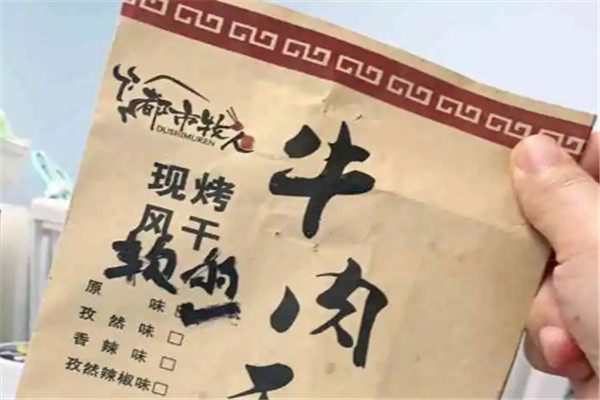 都市牧人
DUSHIMUREN
牛肉
现烤
风干
软的
原味
孜然味□
香辣味□
孜然辣椒味□